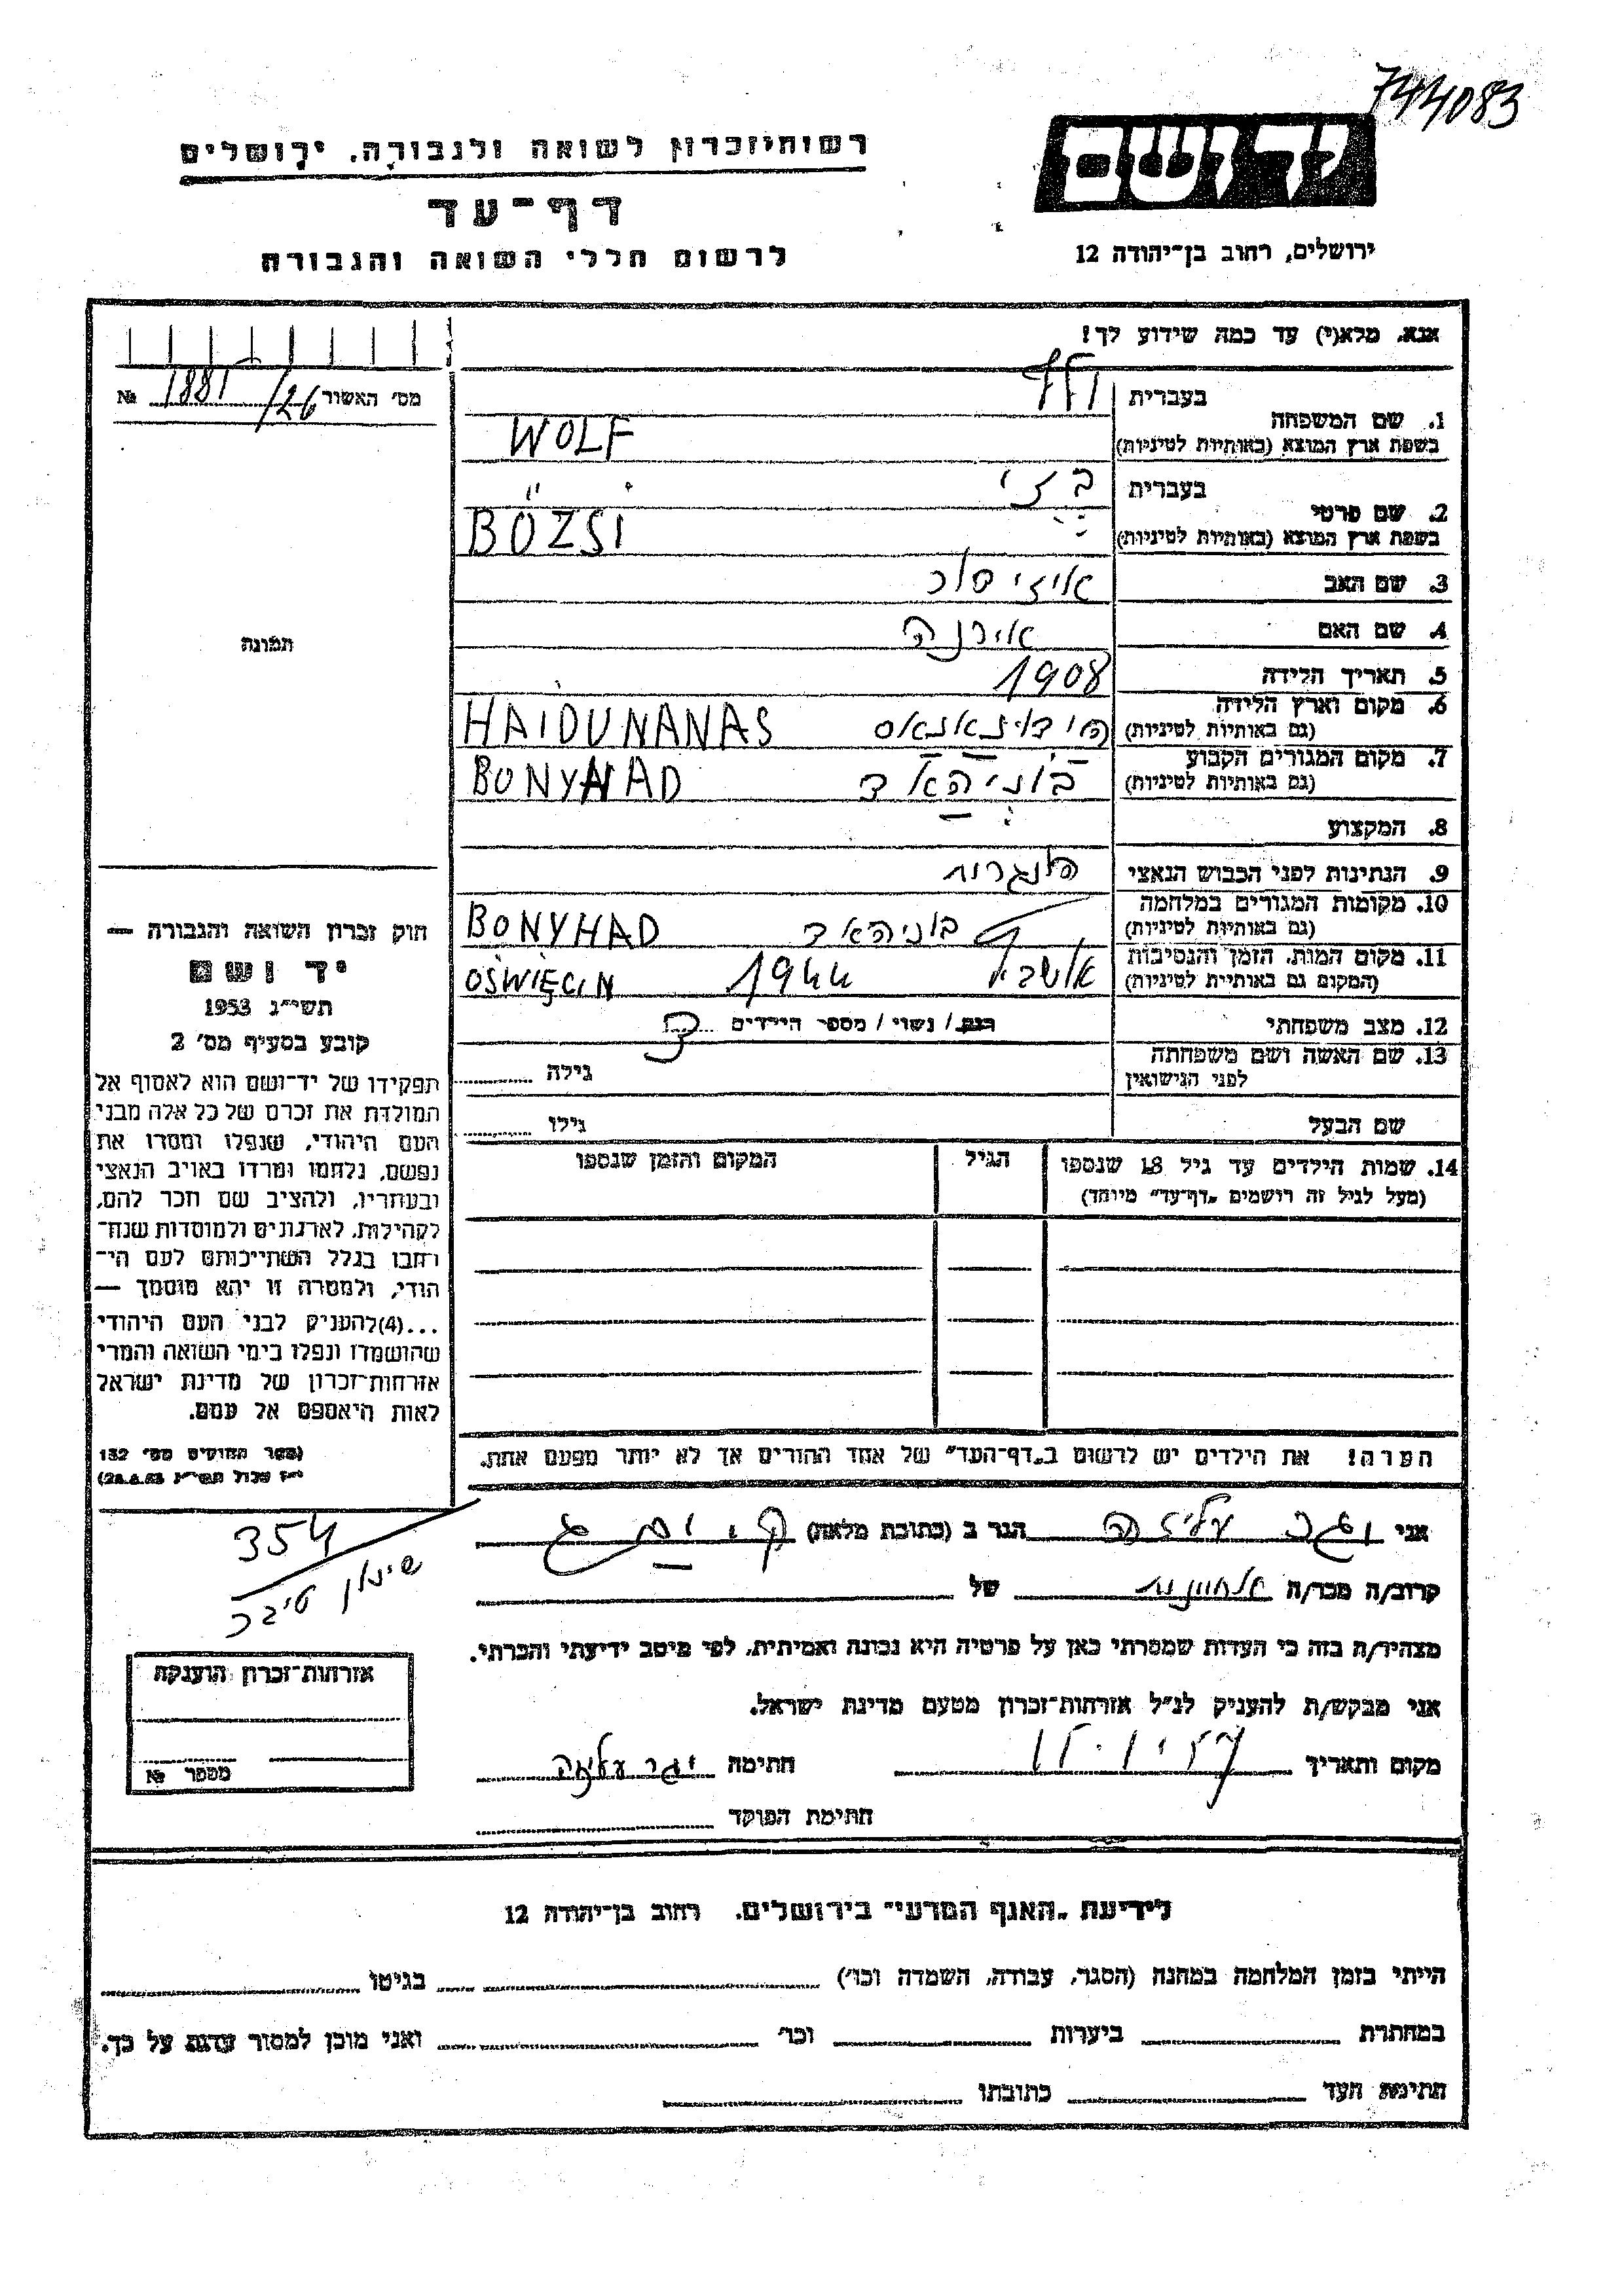 744083
יד ושם
ירושלים, רחוב בן־יהודה 12
רשות־זכרון לשואה ולגבורה, ירושלים
דף־עד
לרשום חללי השואה והגבורה
אנא, מלא(י) עד כמה שידוע לך!
מס' האשור 1881/26 №
1. שם המשפחה
בעברית וולף
בשפת ארץ המוצא (באותיות לטיניות) WOLF
2. שם פרטי
בעברית בזי
בשפת ארץ המוצא (באותיות לטיניות) BÖZSI
3. שם האב
4. שם האם אירנה
5. תאריך הלידה 1908
6. מקום וארץ הלידה
(גם באותיות לטיניות) HAIDUNANAS
7. מקום המגורים הקבוע
(גם באותיות לטיניות) בוניהאד BONYHAD
8. המקצוע
9. הנתינות לפני הכבוש הנאצי הונגרית
10. מקומות המגורים במלחמה
(גם באותיות לטיניות) בוניהאד BONYHAD
11. מקום המות, הזמן והנסיבות
(המקום גם באותיות לטיניות) 1944 OŚWIĘCIM
12. מצב משפחתי רווק / נשוי / מספר הילדים
13. שם האשה ושם משפחתה
לפני הנישואין
גילה
שם הבעל
גילו
14. שמות הילדים עד גיל 18 שנספו
(מעל לגיל זה רושמים „דף־עד" מיוחד)
הגיל
המקום והזמן שנספו
הערה! את הילדים יש לרשום ב„דף־העד" של אחד ההורים אך לא יותר מפעם אחת.
תמונה
חוק זכרון השואה והגבורה —
יד ושם
תשי"ג 1953
קובע בסעיף מס' 2
תפקידו של יד־ושם הוא לאסוף אל
המולדת את זכרם של כל אלה מבני
העם היהודי, שנפלו ומסרו את
נפשם, נלחמו ומרדו באויב הנאצי
ובעוזריו, ולהציב שם וזכר להם,
לקהילות, לארגונים ולמוסדות שנח־
רבו בגלל השתייכותם לעם הי־
הודי, ולמטרה זו יהא מוסמך —
...(4)להעניק לבני העם היהודי
שהושמדו ונפלו בימי השואה והמרי
אזרחות־זכרון של מדינת ישראל
לאות היאספם אל עמם.
(ספר החוקים מס' 132
י"ז אלול תשי"ג 28.8.53)
354
אני עליזה הגר ב (כתובת מלאה)
קרוב/ה מכר/ה של
מצהיר/ה בזה כי העדות שמסרתי כאן על פרטיה היא נכונה ואמיתית, לפי מיטב ידיעתי והכרתי.
אני מבקש/ת להעניק לנ"ל אזרחות־זכרון מטעם מדינת ישראל.
מקום ותאריך
חתימה
חתימת הפוקד
אזרחות־זכרון הוענקה
מספר №
לידיעת „האגף המדעי" בירושלים, רחוב בן־יהודה 12
הייתי בזמן המלחמה במחנה (הסגר, עבודה, השמדה וכו') בגיטו
במחתרת ביערות וכו' ואני מוכן למסור עדות על כך.
חתימת העד כתובתו